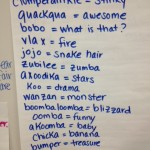 = stinky
quackqua = awesome
bobo = what is that?
wlax = fire
jojo = snake hair
zubilee = zumba
akoodika = stars
Koo = drama
wanzan = monster
boombaloomba = blizzard
oomba = funny
akoomba = baby
chicka = banana
bumper = treasure